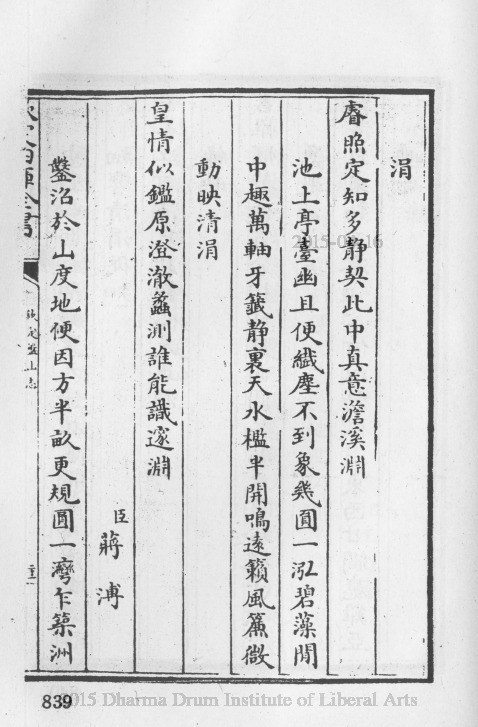 涓
睿照定知多静契此中真意澹溪淵
池上亭臺幽且便纎塵不到象幾圓一泓碧藻閒
中趣萬軸牙籖静裏天水檻半開鳴遠籟風簾微
動映清涓
皇情似鑑原澄澈蠡測誰能識邃淵
臣蔣溥
鑿沼於山度地便因方半畝更規圓一灣乍築洲
欽定盤山志
839
2015-03-16
©2015 Dharma Drum Institute of Liberal Arts